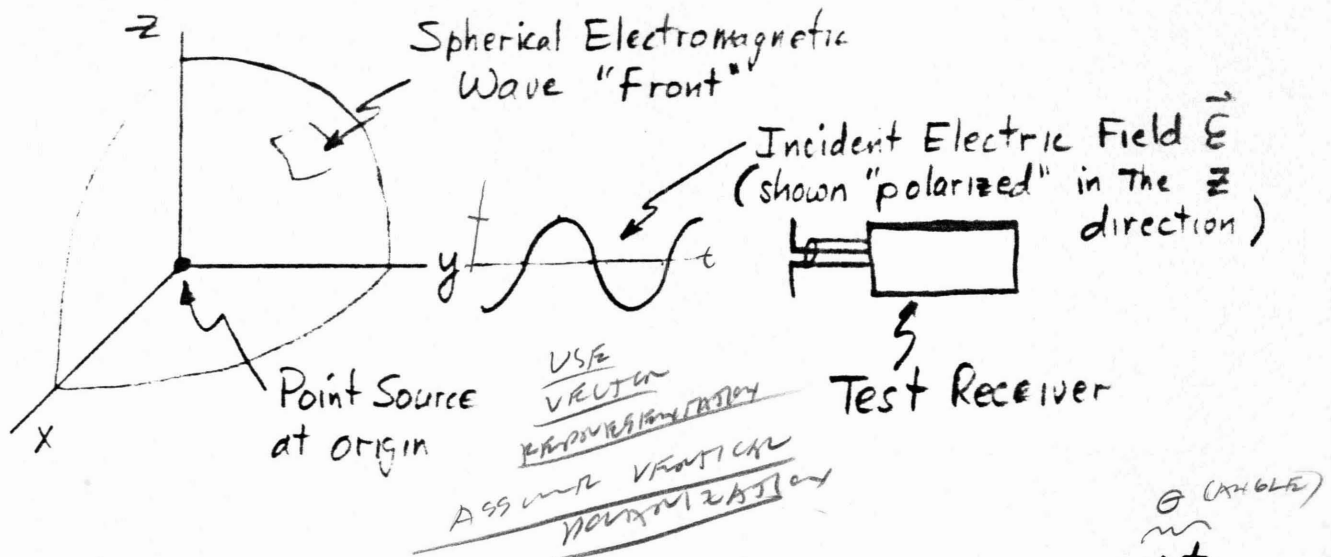 z
Spherical Electromagnetic
Wave "Front"
Incident Electric Field ε⃗
(shown "polarized" in The z
direction)
y
t
x
Point Source
at origin
USE
VECTOR
REPRESENTATION
ASSUME VERTICAL
POLARIZATION
Test Receiver
θ (ANGLE)